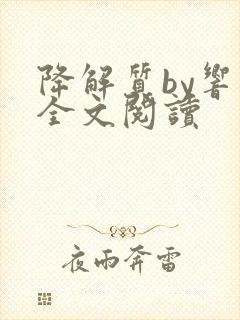 降解質by響
全文閱讀
夜雨奔雷